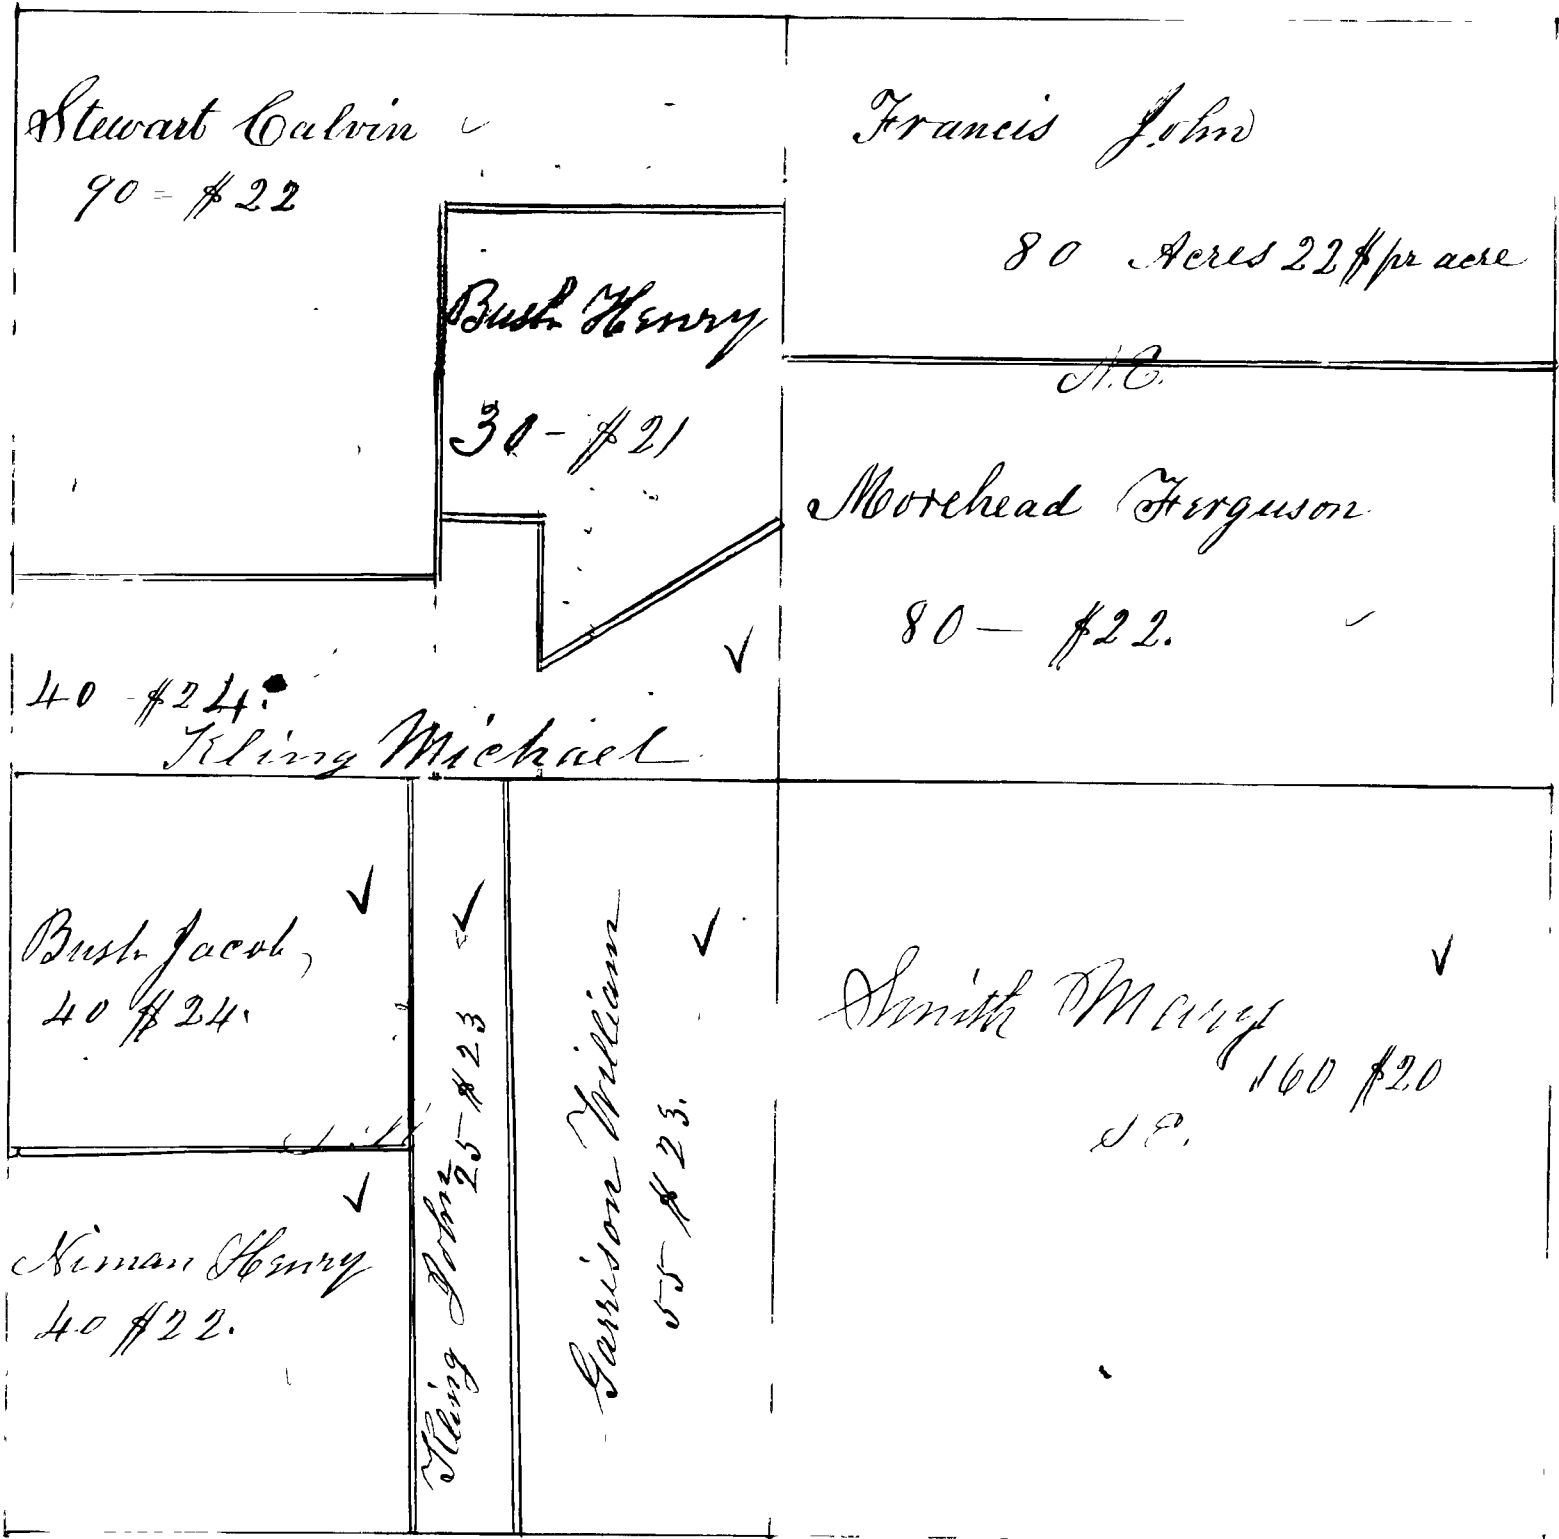 Stewart Calvin
90 = $22
Francis John
80 Acres 22$ pr acre
Bush Henry
30 - $21
N.E.
Morehead Ferguson
80 — $22.
40 - $24.
Kling Michael
Bush Jacob,
40 $24.
Niman Henry
40 $22.
Kling John
25 - $23
Garrison William
55 - $23.
Smith Mary
160 $20
S E.